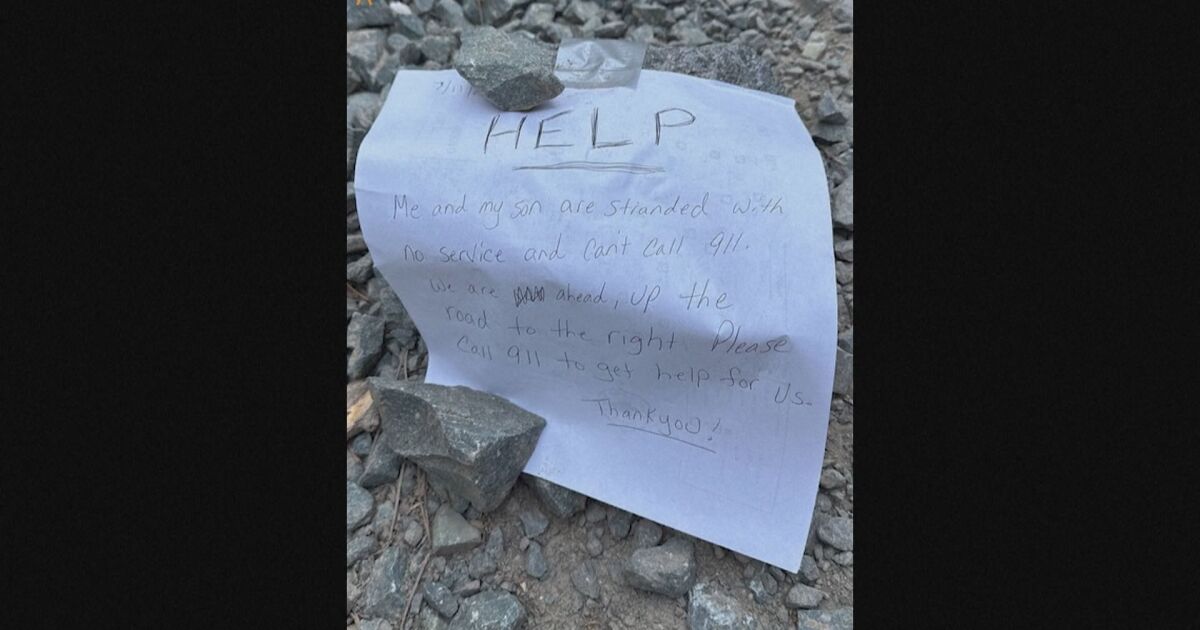 HELP
Me and my son are stranded with
no service and can't call 911.
We are ahead, up the
road to the right Please
call 911 to get help for us.
Thankyou!